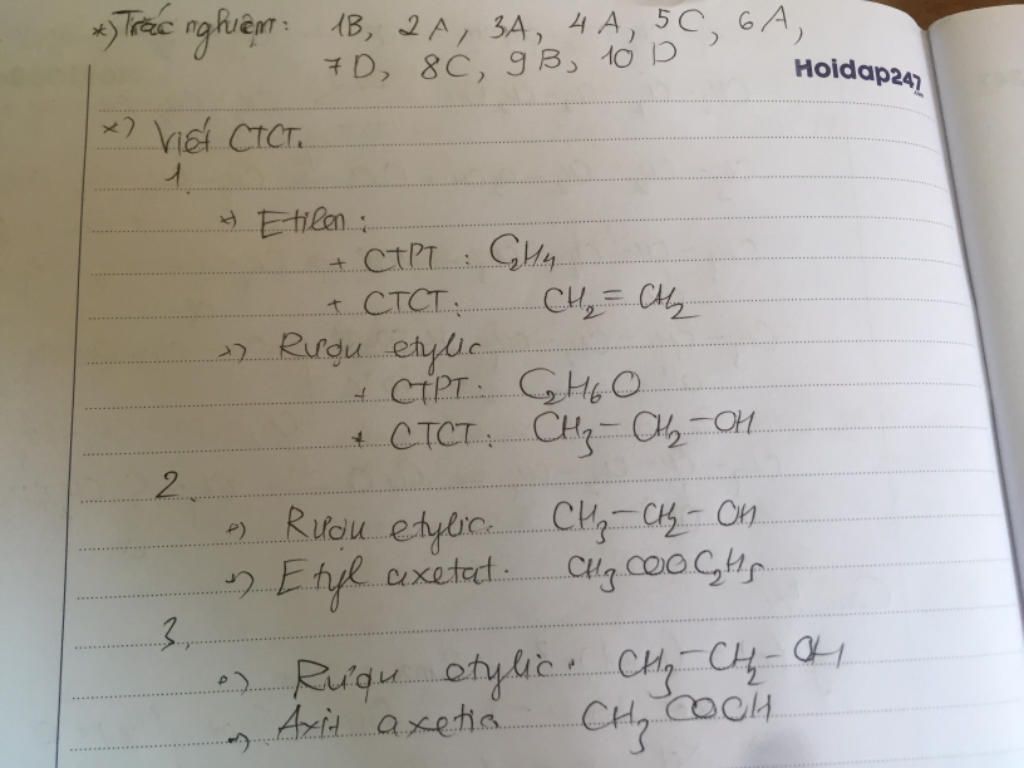 *) Trắc nghiệm: 1B, 2A, 3A, 4A, 5C, 6A,
7D, 8C, 9B, 10D
Hoidap247.com
*) Viết CTCT.
1.
*) Etilen:
+ CTPT: C₂H₄
+ CTCT: CH₂ = CH₂
*) Rượu etylic
+ CTPT: C₂H₆O
+ CTCT: CH₃ - CH₂ - OH
2.
*) Rượu etylic. CH₃ - CH₂ - OH
*) Etyl axetat. CH₃COOC₂H₅
3.
*) Rượu etylic. CH₃ - CH₂ - OH
*) Axit axetic CH₃COOH